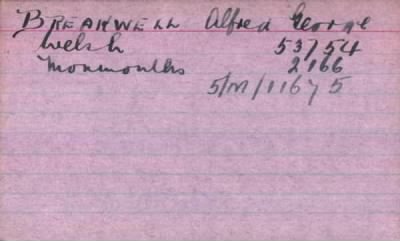 BREAKWELL Alfred George
Welsh 53754
Monmouths 2166
5/M/11675